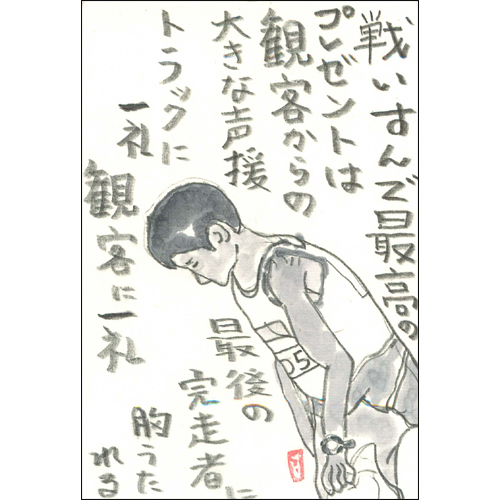 戦いすんで最高の
プレゼントは
観客からの
大きな声援
トラックに
一礼
観客に一礼
最後の
完走者に
胸うた
れる
05